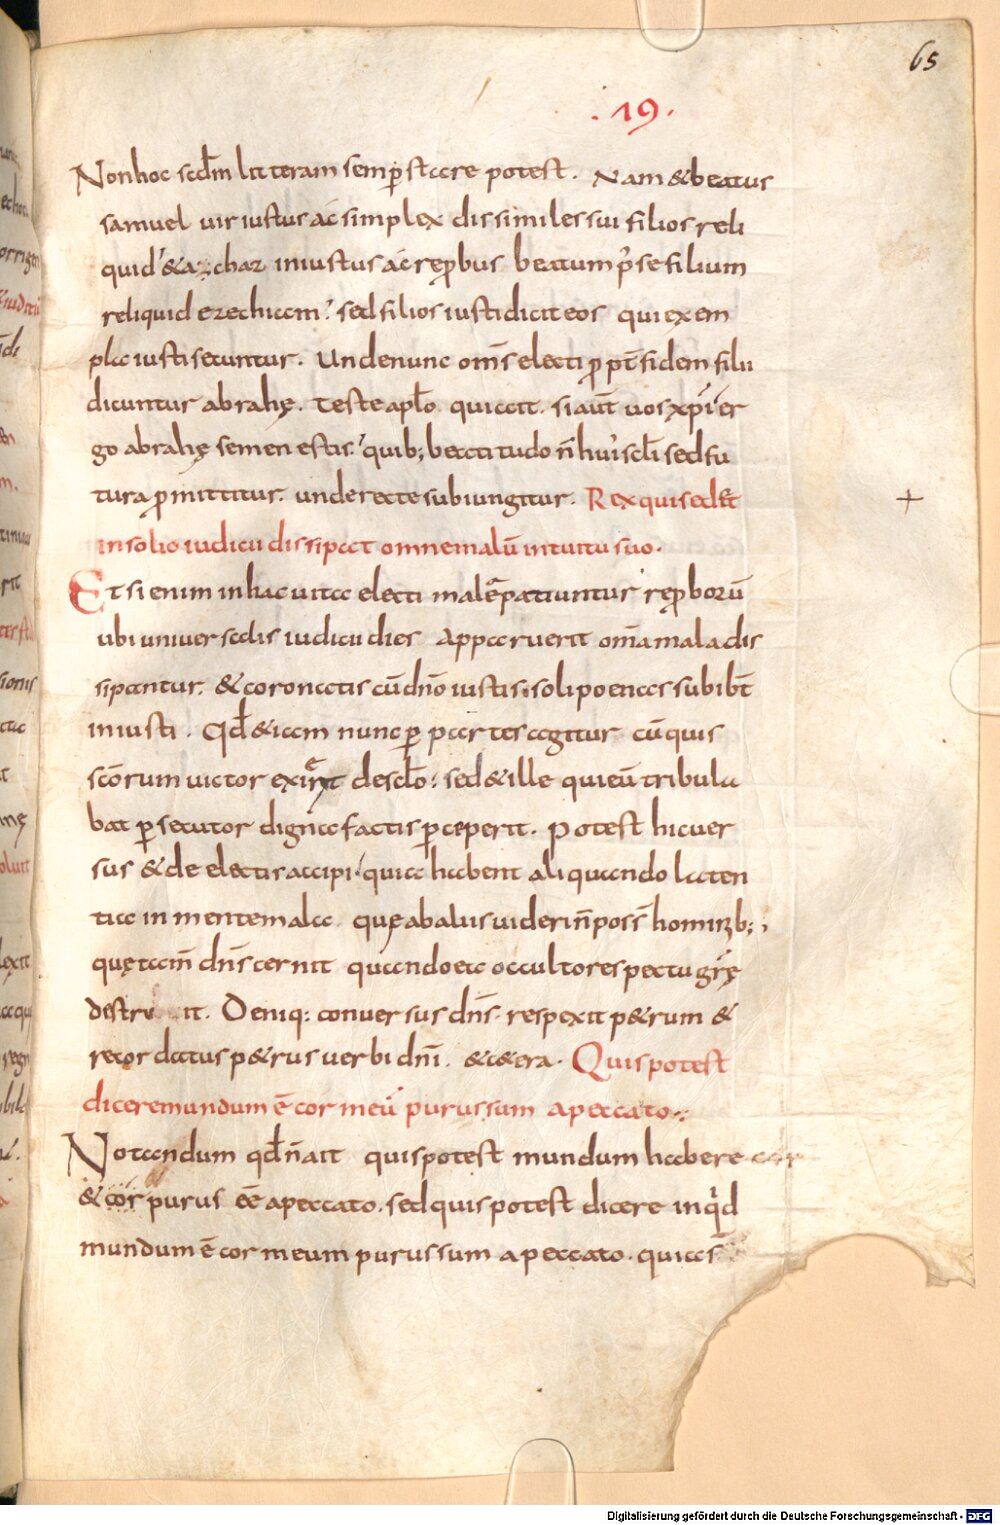 65
.19.
Nonhoc scdm litteram semp stare potest. Nam & beatus
samuel uir iustus ac simplex dissimiles sui filios reli
quid & achaz iniustus ac reprobus beatum p se filium
reliquid ezechiam. sed filios iusti dicit eos qui exem
pla iusti secuntur. Unde nunc oms electi p pt fidem filii
dicuntur abrahę. Teste aplo qui ait. si aut uos xpi er
go abrahę semen estis. quib; beatitudo n hui scli sed fu
tura pmittitur. unde recte subiungitur. Rex qui sedet
in solio iudicii dissipat omne malū intuitu suo.
Et si enim in hac uita electi mala patiuntur reproborū
ubi uniuersalis iudicii dies apparuerit omia mala dis
sipantur. & coronatis cū dno iustis soli poenas subibt
iniusti. Qd & iam nunc p partes agitur cū quis
scorum uictor exierit de sclo. sed & ille qui eū tribula
bat psecutor digna factis pceperit. Potest hic uer
sus & de electis accipi quia habent aliquando laten
tia in mente mala quę ab aliis uideri n poss hominib;
quę tam dns cernit quando ea occulto respectu grę
destruit. Deniq: conuersus dns respexit p&rum &
recordatus p&rus uerbi dni. & c&era. Quis potest
dicere mundum ē cor meū purus sum a peccato.
Notandum qd n ait quis potest mundum habere cor
& cor purus ēē a peccato. sed quis potest dicere inqd
mundum ē cor meum purus sum a peccato. quia s
Digitalisierung gefördert durch die Deutsche Forschungsgemeinschaft - DFG